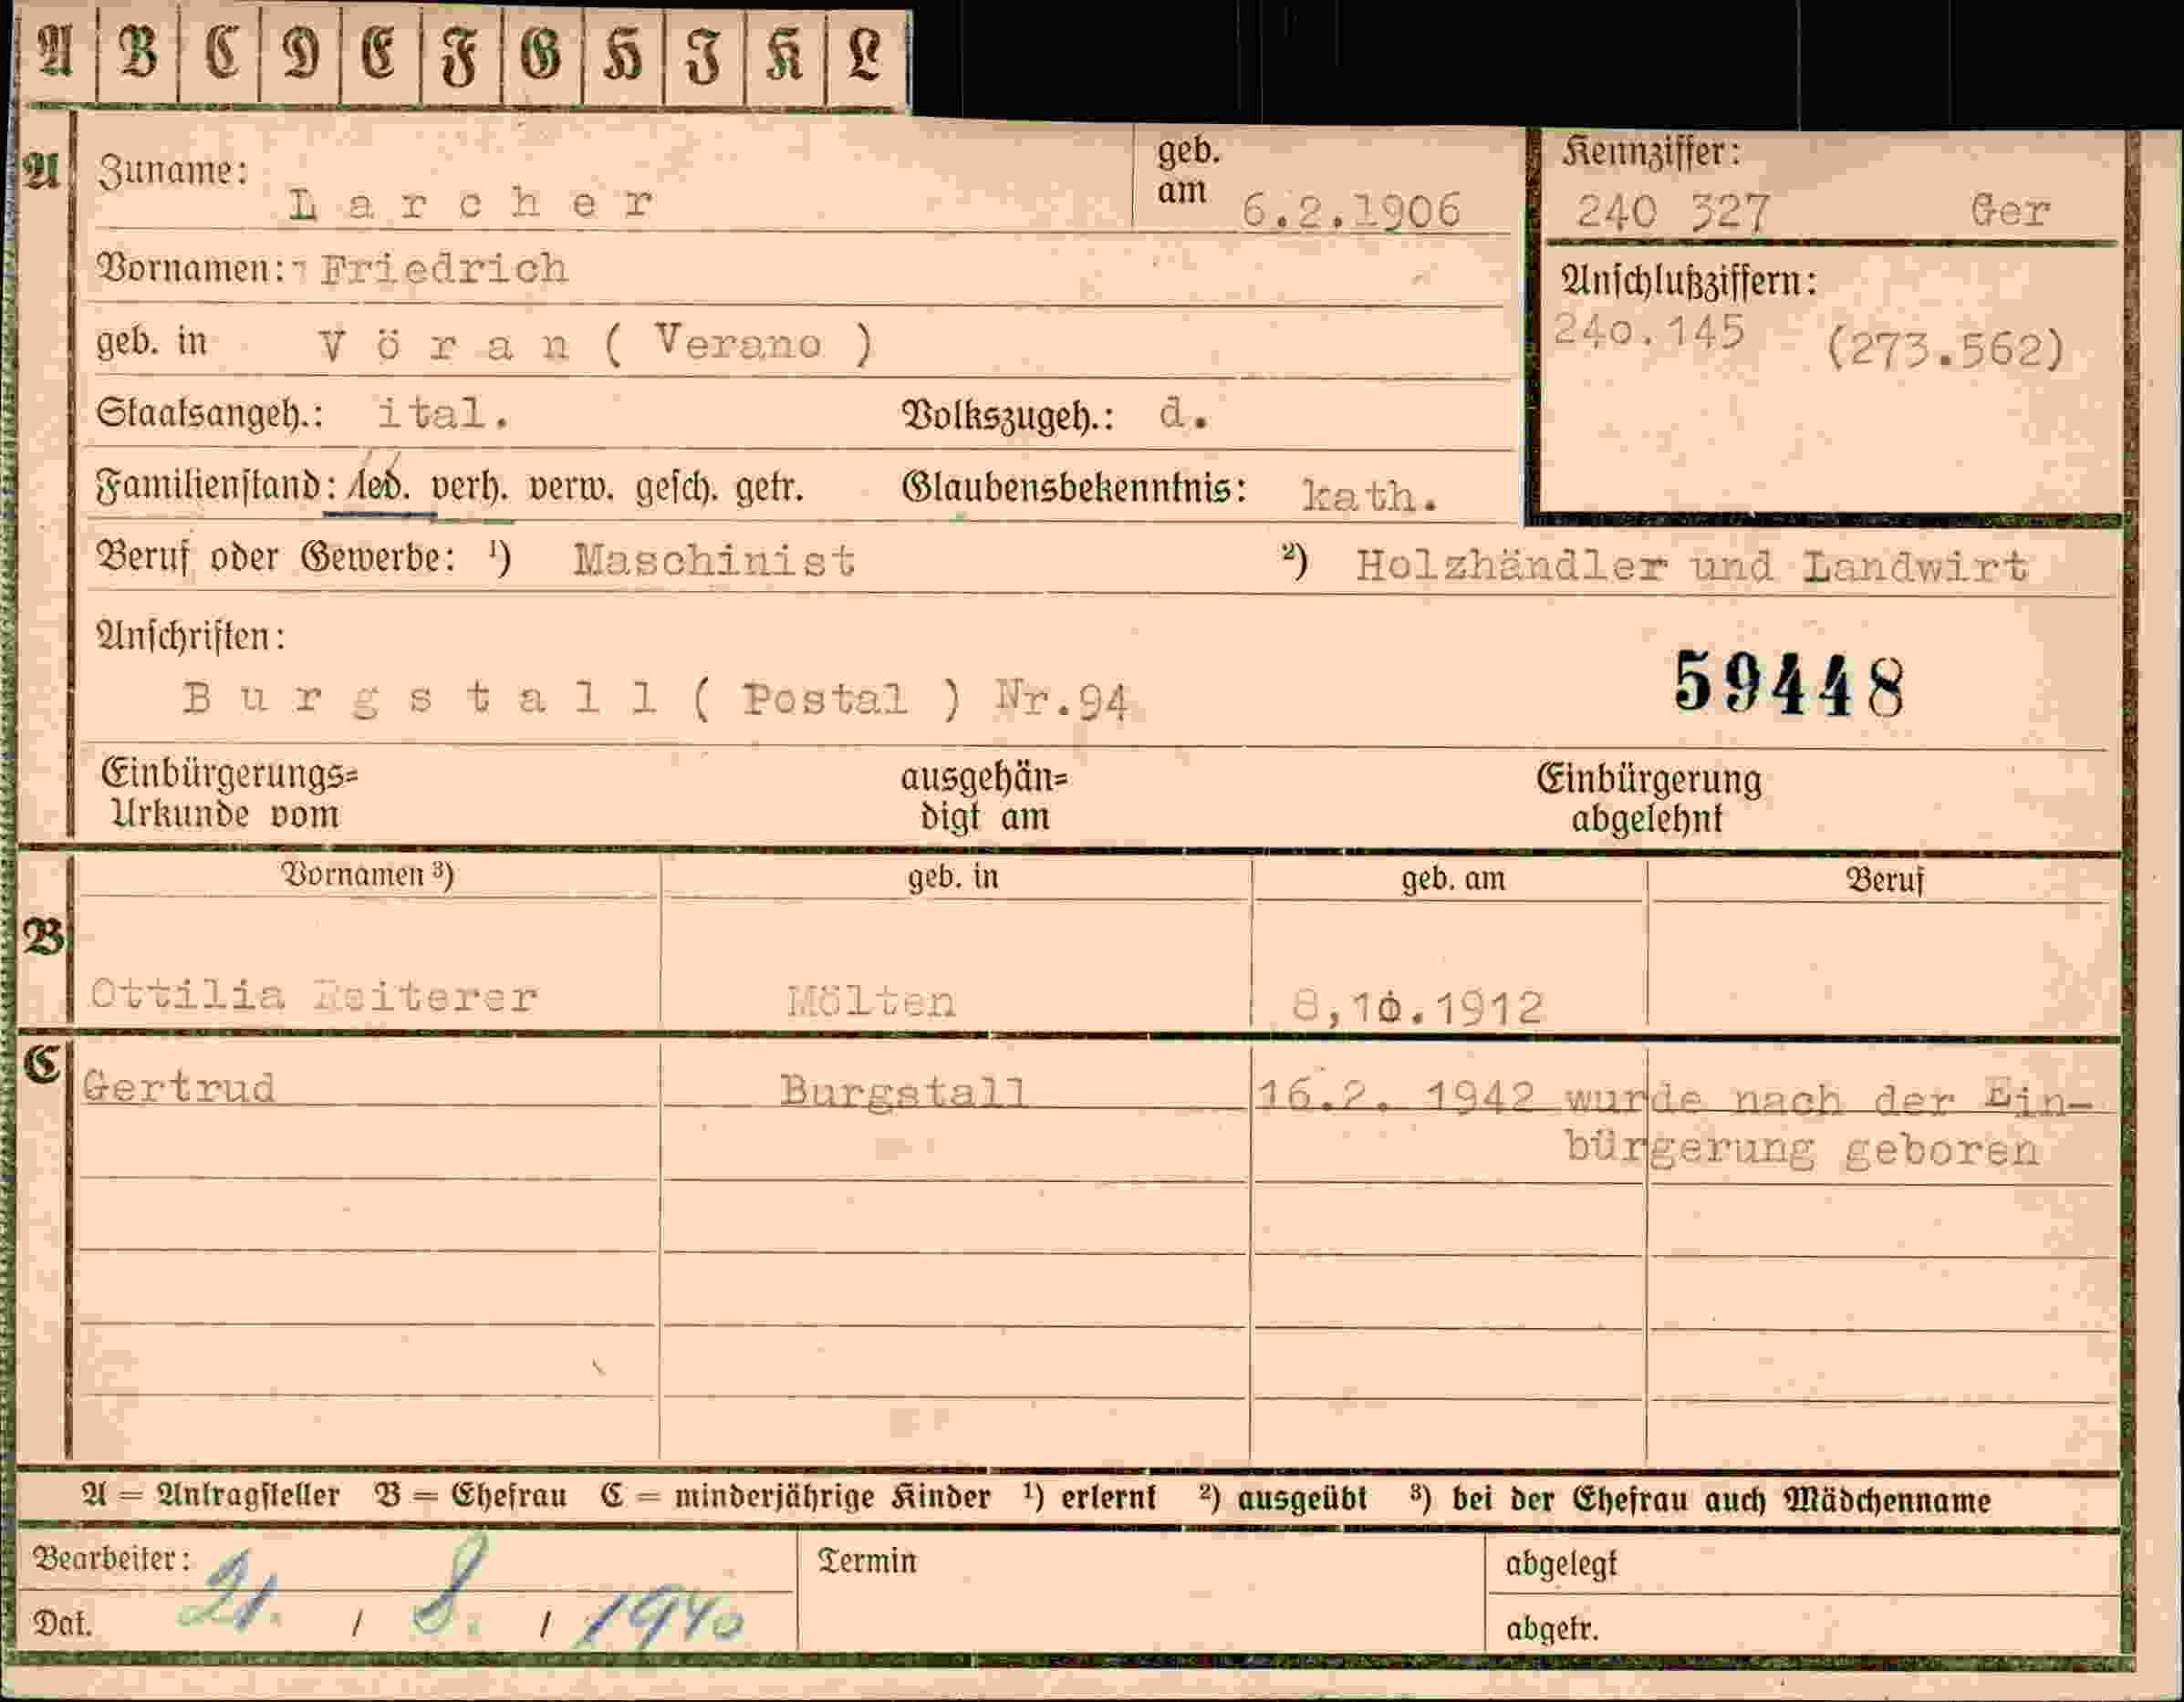 A B C D E F G H I K L
A Zuname: Larcher geb. am 6.2.1906 Kennziffer: 240 327 Ger
Vornamen: Friedrich
Anschlußziffern:
geb. in Vöran ( Verano ) 240.145 (273.562)
Staatsangeh.: ital. Volkszugeh.: d.
Familienstand: led. verh. verw. gesch. getr. Glaubensbekenntnis: kath.
Beruf oder Gewerbe: ¹) Maschinist ²) Holzhändler und Landwirt
Anschriften:
Burgstall ( Postal ) Nr.94 59448
Einbürgerungs= ausgehän= Einbürgerung
Urkunde vom digt am abgelehnt
Vornamen ³) geb. in geb. am Beruf
B
Ottilia Reiterer Mölten 8,10.1912
C Gertrud Burgstall 16.2. 1942 wurde nach der Ein-
bürgerung geboren
A = Antragsteller B = Ehefrau C = minderjährige Kinder ¹) erlernt ²) ausgeübt ³) bei der Ehefrau auch Mädchenname
Bearbeiter: Termin abgelegt
Dat. 21. / 8. / 1940 abgetr.